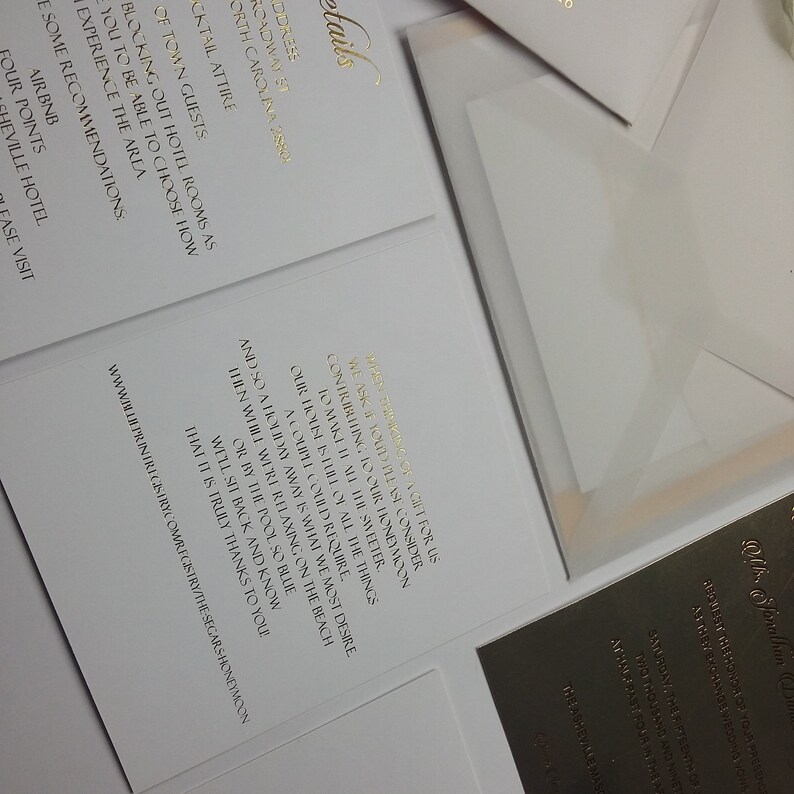 etails
ADDRESS
BROADWAY ST
NORTH CAROLINA, 28801
COCKTAIL ATTIRE
OF TOWN GUESTS:
BLOCKING OUT HOTEL ROOMS AS
YOU TO BE ABLE TO CHOOSE HOW
EXPERIENCE THE AREA
E SOME RECOMMENDATIONS:
AIRBNB
FOUR POINTS
ASHEVILLE HOTEL
PLEASE VISIT
WHEN THINKING OF A GIFT FOR US
WE ASK IF YOU'D PLEASE CONSIDER
CONTRIBUTING TO OUR HONEYMOON
TO MAKE IT ALL THE SWEETER.
OUR HOUSE IS FULL OF ALL THE THINGS
A COUPLE COULD REQUIRE.
AND SO A HOLIDAY AWAY IS WHAT WE MOST DESIRE.
THEN WHILE WE'RE RELAXING ON THE BEACH
OR BY THE POOL SO BLUE
WE'LL SIT BACK AND KNOW
THAT IT IS TRULY THANKS TO YOU!
WWW.BLUEPRINTREGISTRY.COM/REGISTRY/THE-SEGARS-HONEYMOON
Mr. Jonathan
REQUEST THE HONOR OF YOUR PRESENCE
AS THEY EXCHANGE WEDDING VOWS
SATURDAY, THE FIFTEENTH OF
TWO THOUSAND AND NINET
AT HALF PAST FOUR IN THE A
THE ASHEVILLE MAS